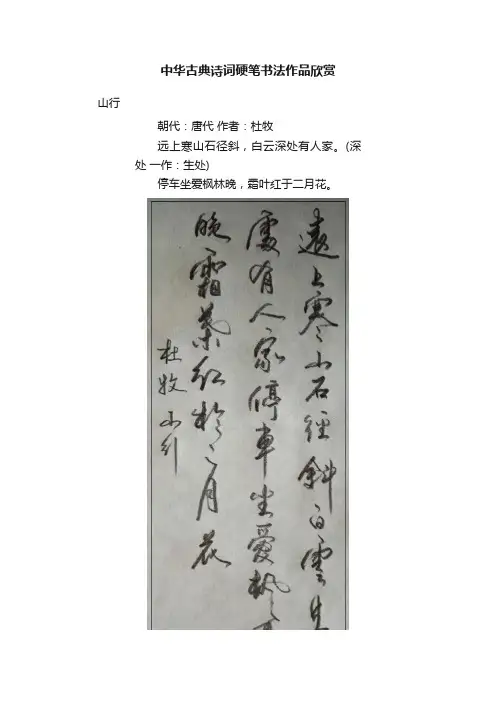 中华古典诗词硬笔书法作品欣赏
山行
朝代：唐代 作者：杜牧
远上寒山石径斜，白云深处有人家。(深
处 一作：生处)
停车坐爱枫林晚，霜叶红于二月花。
遠上寒山石徑斜白雲生
處有人家停車坐愛楓
晚霜葉紅於二月花
杜牧山行